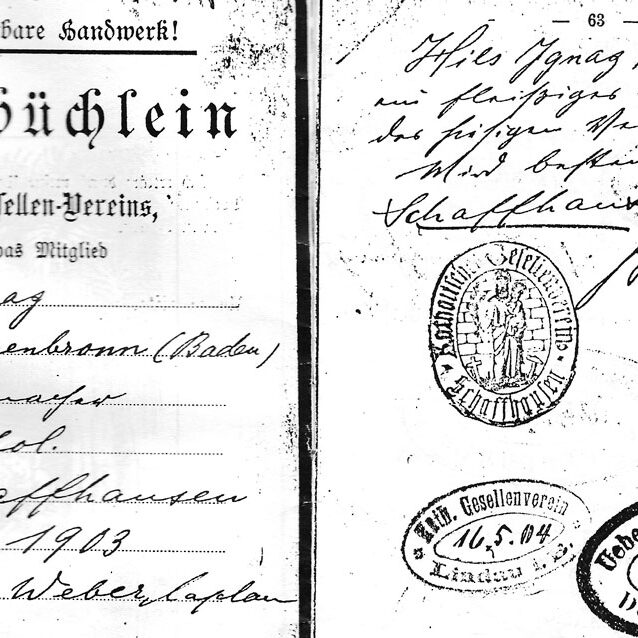 bare Handwerk!
Büchlein
sellen-Vereins,
das Mitglied
enbronn (Baden)
macher
affhausen
1903
Weber, Caplan
— 63
Hils Ignaz
ein fleißiges
des hiesigen Ve
Wird besten
Schaffhaus
Katholischer Gesellenverein
Schaffhausen
Kath. Gesellenverein
16.5.04
Lindau i. B.
Uebe